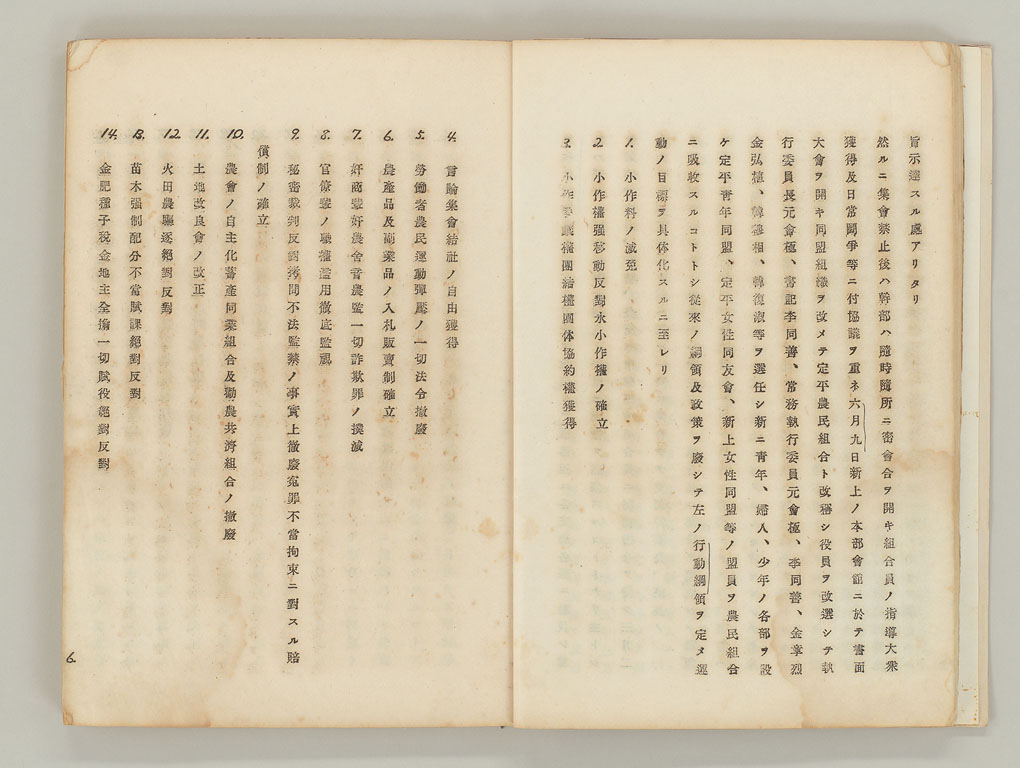 旨示達スル處アリタリ
然ルニ集會禁止後ハ幹部ハ隨時隨所ニ密會合ヲ開キ組合員ノ指導大衆
獲得及日常鬪爭等ニ付協議ヲ重ネ六月九日新上ノ本部會館ニ於テ書面
大會ヲ開キ同盟組織ヲ改メテ定平農民組合ト改稱シ役員ヲ改選シテ執
行委員長元會極、書記李同善、常務執行委員元會極、李同善、金章烈
金弘植、韓 相、韓復淑等ヲ選任シ新ニ青年、婦人、少年ノ各部ヲ設
ケ定平青年同盟、定平女性同友會、新上女性同盟等ノ盟員ヲ農民組合
ニ吸收スルコトトシ從來ノ綱領及政策ヲ廢シテ左ノ行動綱領ヲ定メ運
動ノ目標ヲ具体化スルニ至レリ
1. 小作料ノ減免
2. 小作權强移動反對永小作權ノ確立
3. 小作爭議權團結權團体協約權獲得
4. 言論集會結社ノ自由獲得
5. 勞働者農民運動彈壓ノ一切法令撤廢
6. 農產品及副業品ノ入札販賣制確立
7. 奸商輩奸農舍音農監一切詐欺罪ノ撲滅
8. 官僚輩ノ職權濫用徹底監視
9. 秘密裁判反對拷問不法監禁ノ事實上撤廢寃罪不當拘束ニ對スル賠
償制ノ確立
10. 農會ノ自主化畜產同業組合及勸農共濟組合ノ撤廢
11. 土地改良會ノ改正
12. 火田農驅逐絕對反對
13. 苗木强制配分不當賦課絕對反對
14. 金肥種子稅金地主全擔一切賦役絕對反對
6.